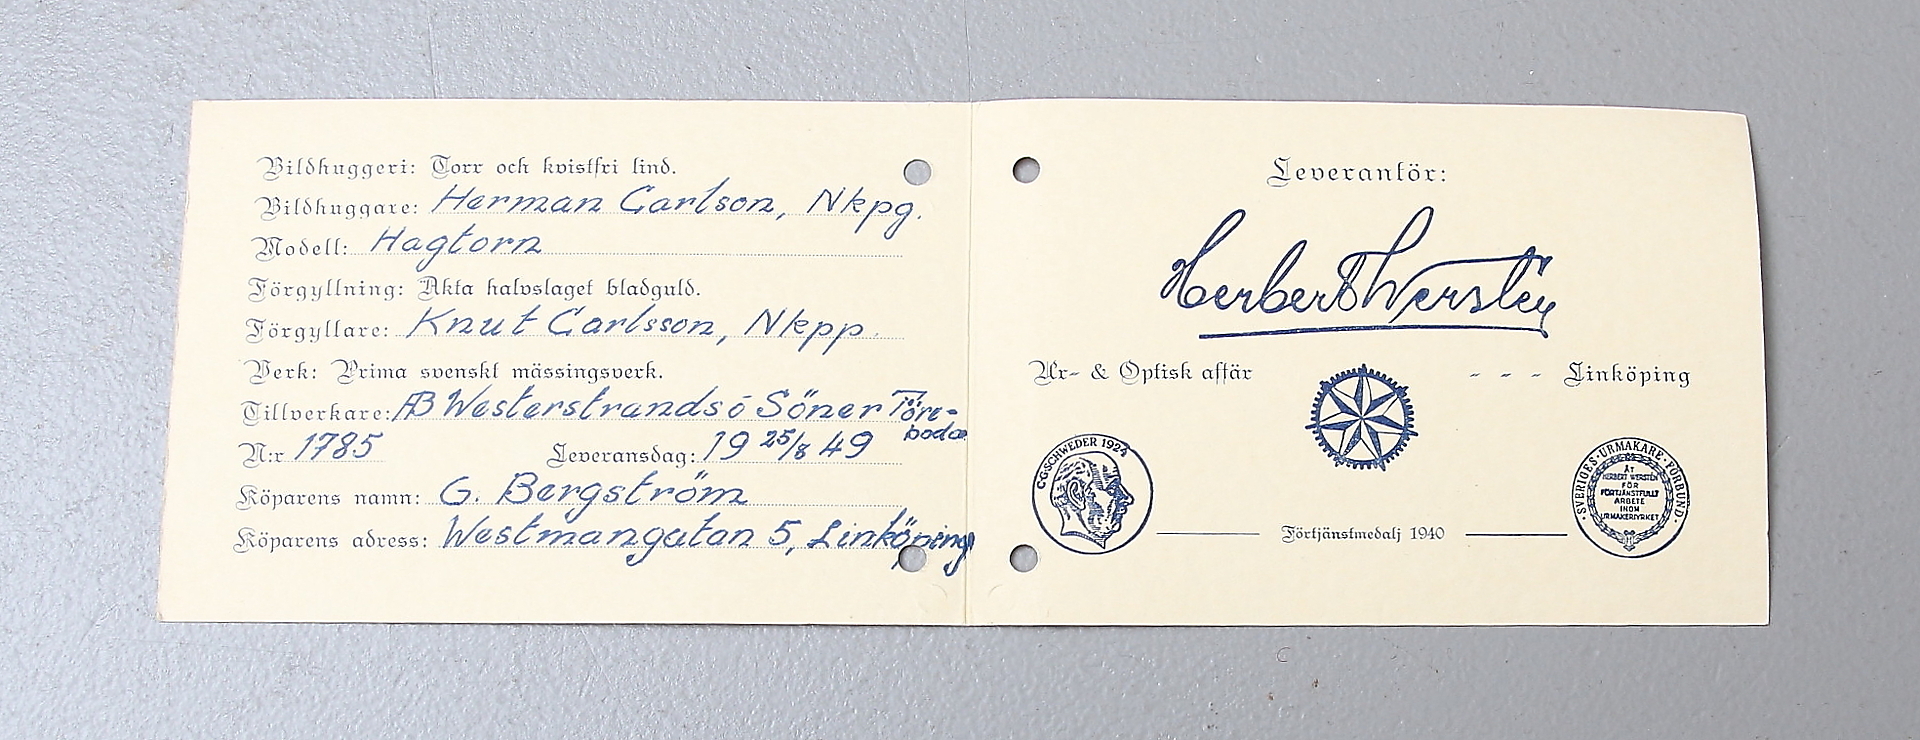 Bildhuggeri: Torr och kvistfri lind.
Bildhuggare: Herman Carlson, Nkpg.
Modell: Hagtorn
Förgyllning: Äkta halvslaget bladguld.
Förgyllare: Knut Carlsson, Nkpp.
Verk: Prima svenskt mässingsverk.
Tillverkare: AB Westerstrands o Söner Töre-
boda
N:r 1785 Leveransdag: 19 25/8 49
Köparens namn: G. Bergström
Köparens adress: Westmangatan 5, Linköping
Leverantör:
Herbert Wersten
Ur- & Optisk affär - - - Linköping
C·G·SCHWEDER 1924
Förtjänstmedalj 1940
·SVERIGES·URMAKARE·FÖRBUND·
ÅT
HERBERT WERSTÉN
FÖR
FÖRTJÄNSTFULLT
ARBETE
INOM
URMAKERIYRKET